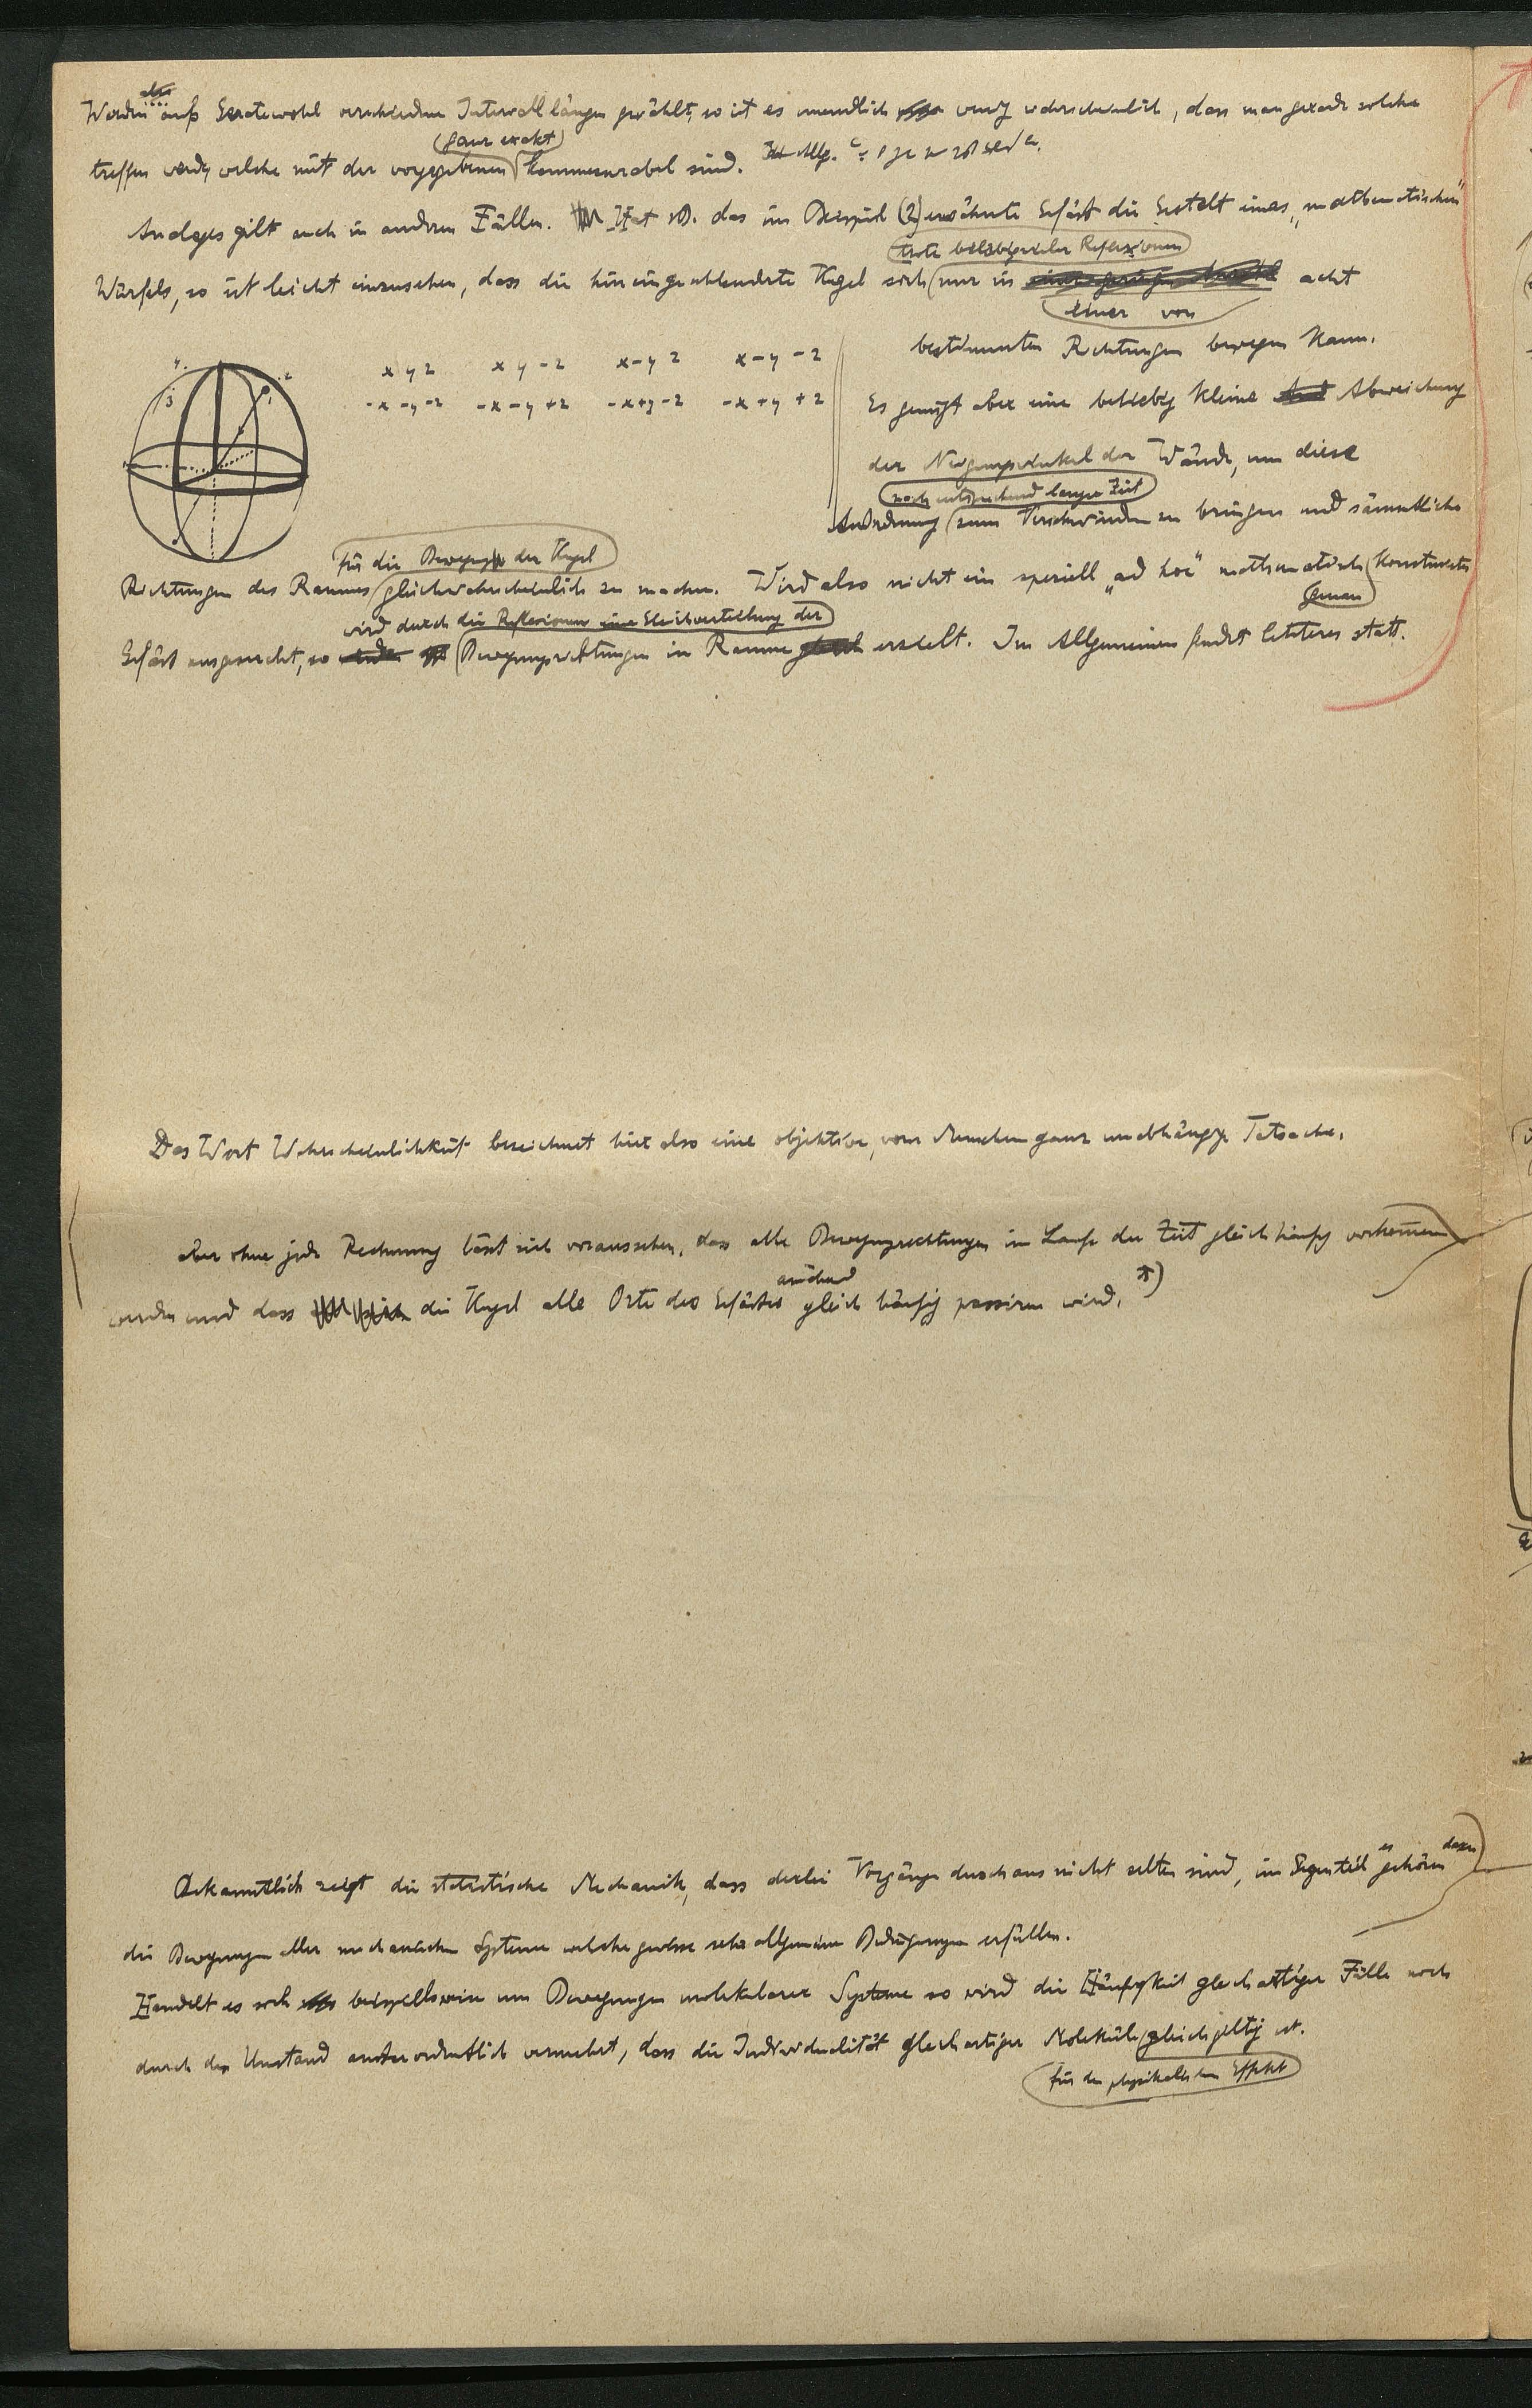 Werden aber aufs Geratewohl verschiedene Intervallängen gewählt, so ist es unendlich wenig wahrscheinlich, dass man gerade solche
(ganz exakt)
treffen werde, welche mit der vorgegebenen kommensurabel sind.
Analoges gilt auch in anderen Fällen. Hat z.B. das im Beispiel (2) erwähnte Gefäss die Gestalt eines „mathematischen"
trotz beliebig vieler Reflexionen
Würfels, so ist leicht einzusehen, dass die hineingeschleuderte Kugel sich nur in einer geringen Anzahl acht
einer von
bestimmten Richtungen bewegen kann.
4. 3 2 1
x y z x y -z x -y z x -y -z
-x -y -z -x -y +z -x +y -z -x +y +z
Es genügt aber eine beliebig kleine Abweichung
der Neigungswinkel der Wände, um diese
nach entsprechend langer Zeit
Anordnung zum Verschwinden zu bringen und sämmtliche
für die Bewegung der Kugel
Richtungen des Raumes gleichwahrscheinlich zu machen. Wird also nicht ein speziell „ad hoc" mathematisch konstruiertes
genau
wird durch die Reflexionen eine Gleichverteilung der
Gefäss ausgesucht, so Bewegungsrichtungen im Raume erzielt. Im Allgemeinen findet letzteres statt.
Das Wort Wahrscheinlichkeit bezeichnet hier also eine objektive, vom Menschen ganz unabhängige Tatsache.
aber ohne jede Rechnung lässt sich voraussehen, dass alle Bewegungsrichtungen im Laufe der Zeit gleich häufig vorkommen
annähernd
werden und dass die Kugel alle Orte des Gefässes gleich häufig passiren wird. *)
es dazu
Bekanntlich zeigt die statistische Mechanik, dass derlei Vorgänge durchaus nicht selten sind, im Gegenteil gehören
die Bewegungen aller mechanischen Systeme welche gewisse sehr allgemeine Bedingungen erfüllen.
Handelt es sich beispielsweise um Bewegungen molekularer Systeme so wird die Häufigkeit gleichartiger Fälle noch
durch den Umstand ausserordentlich vermehrt, dass die Individualität gleichartiger Moleküle gleichgiltig ist.
für den physikalischen Effekt